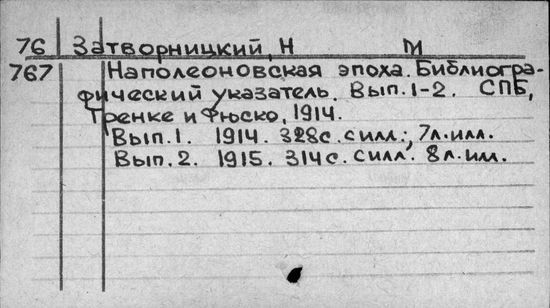 76 Затворницкий, Н М
767 Наполеоновская эпоха. Библиогра-
фический указатель. Вып. 1-2. СПБ,
Тренке и Фюско, 1914.
Вып. 1. 1914. 328с. силл.; 7л. илл.
Вып. 2. 1915. 314с. силл. 8л. илл.